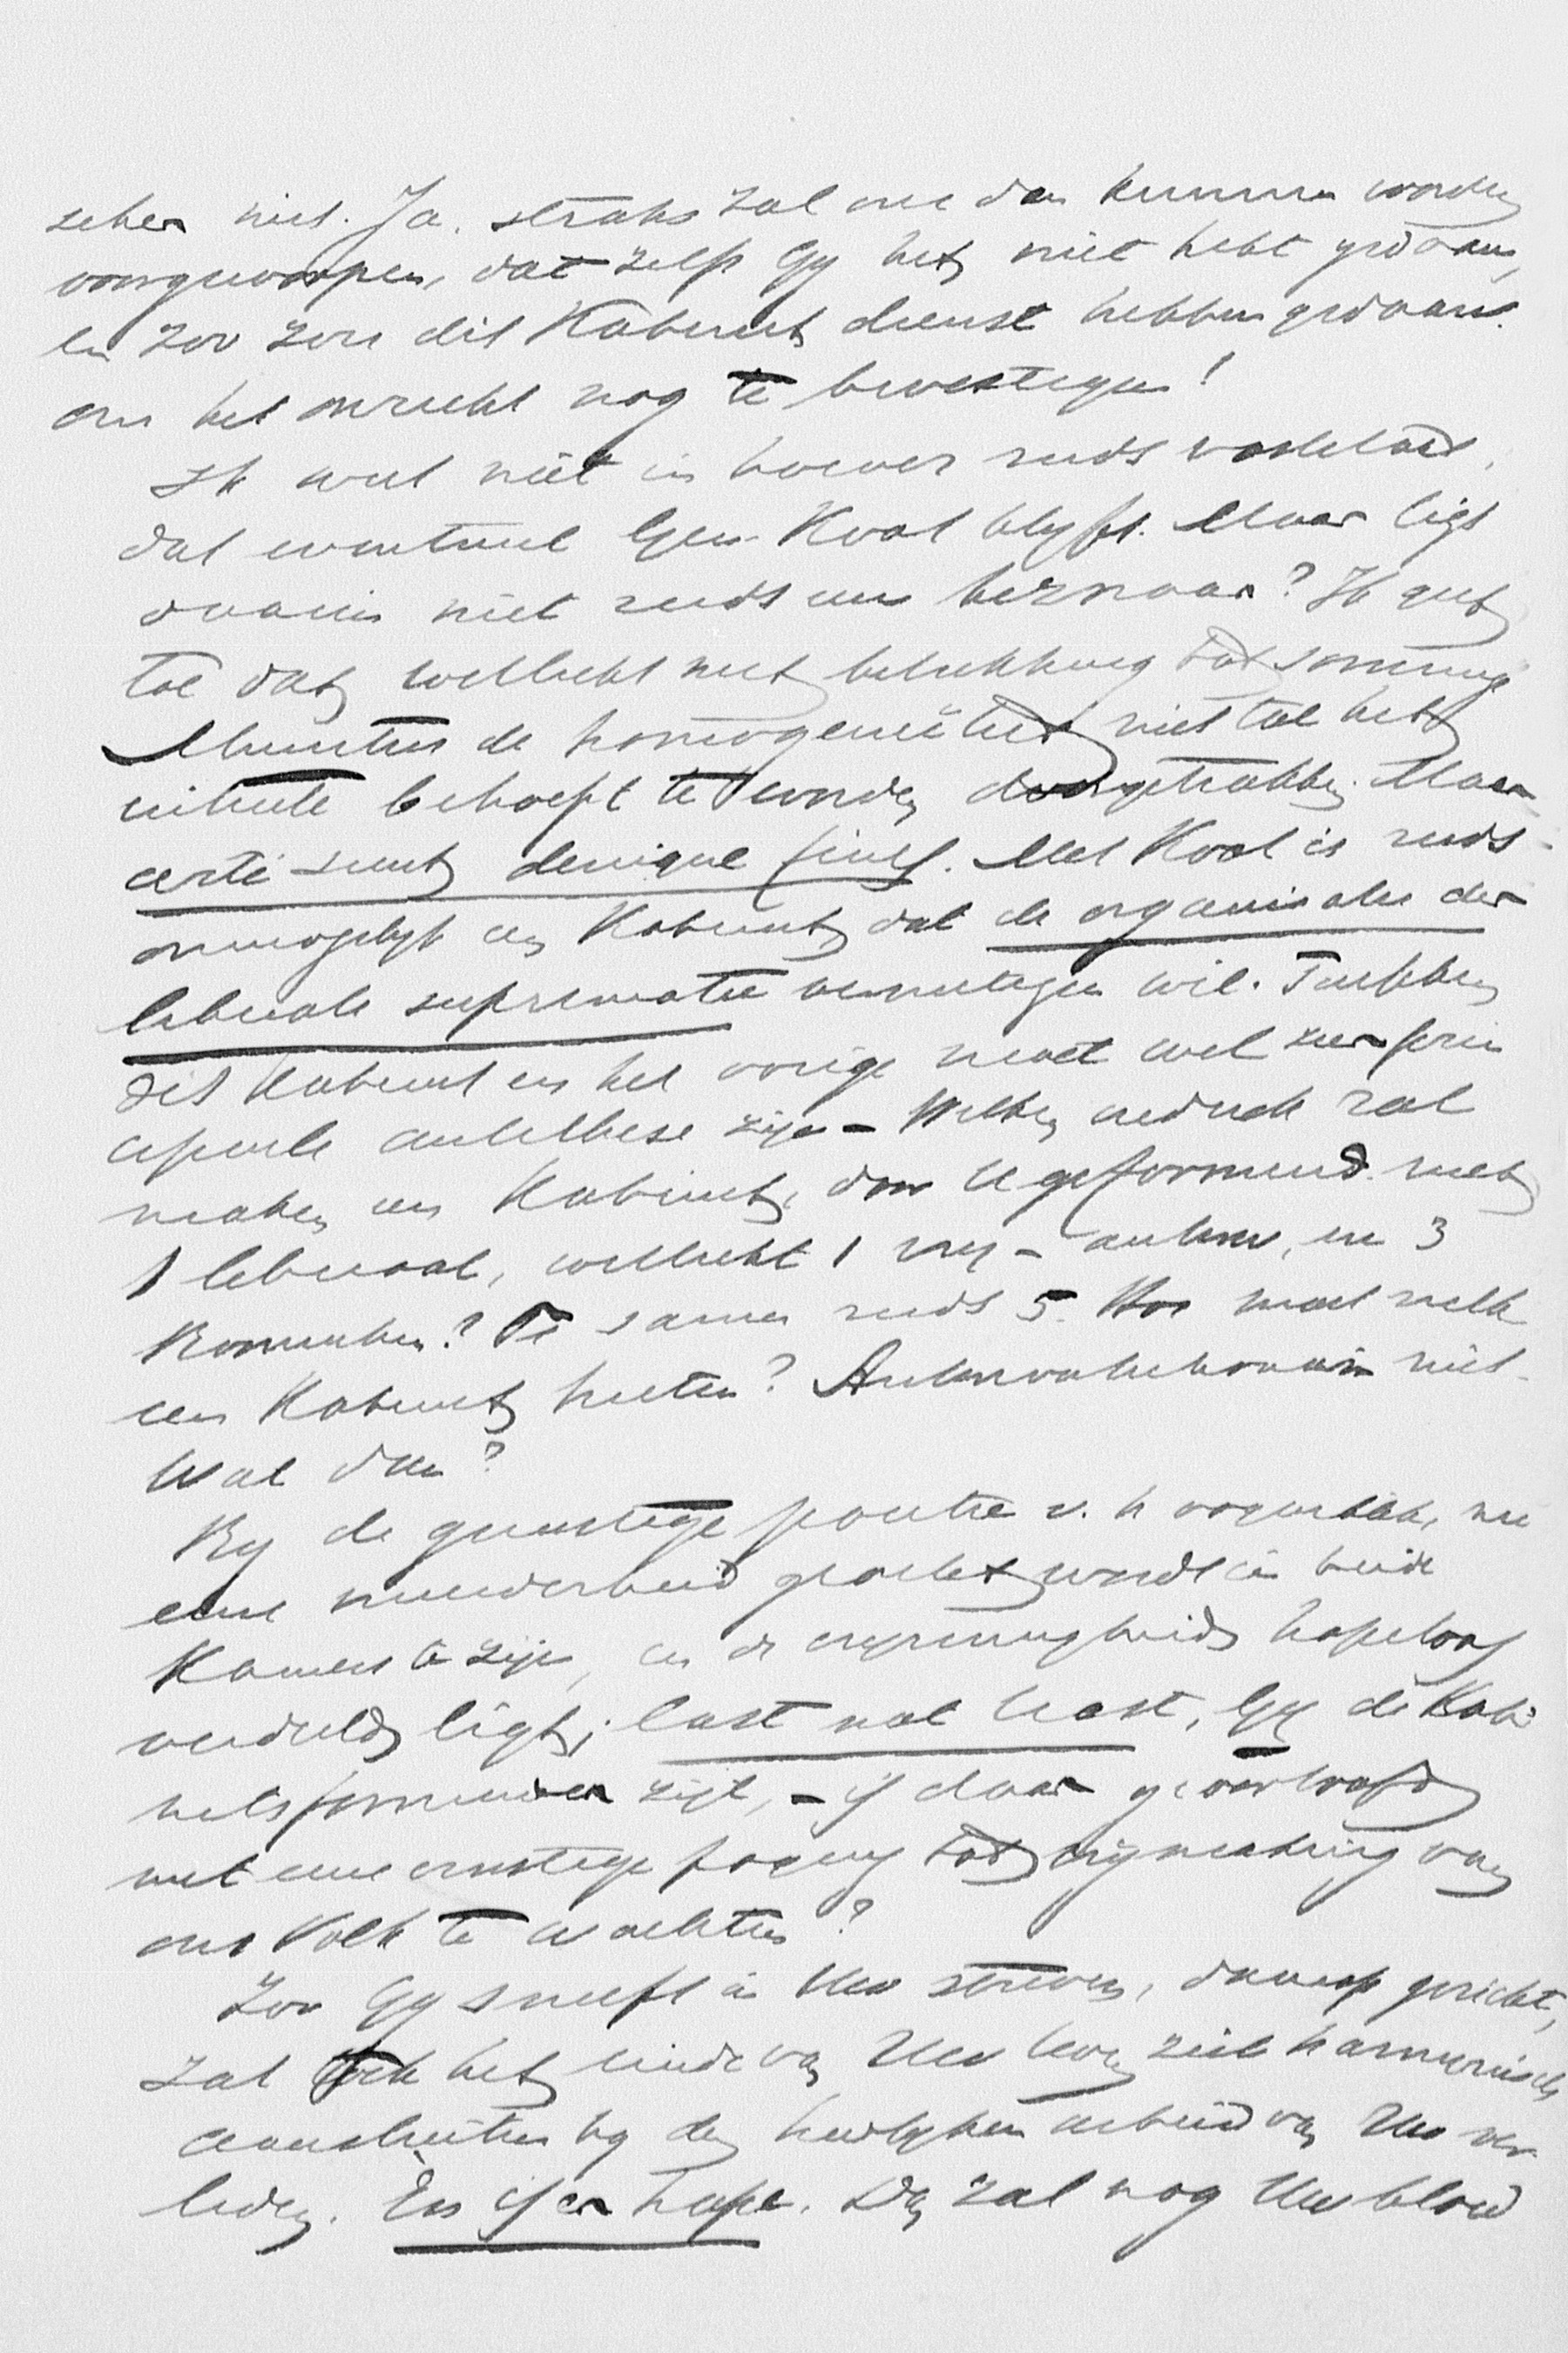 zeker niet. Ja, straks zal me dan kunnen worden
voorgeworpen, dat zelfs Gy het niet hebt gedaan,
en zoo zou dit Kabinet dienst hebben gedaan
om het onrecht nog te bevestigen!
Ik weet niet in hoever reeds vaststaat,
dat eventueel Gen. Kool blyft. Maar ligt
daarin niet reeds een bezwaar? Ik geef
toe dat wellicht met betrekking tot sommige
Ministers de homogeniëteit niet tot het
uiterste behoeft te worden doorgetrokken. Maar
certi sunt denique fines. Met Kool is reeds
onmogelyk een Kabinet dat de organisatie der
liberale suprematie vernietigen wil. Tusschen
dit Kabinet en het vorige moet wel zeer
besliste antithese zijn – Welken indruk zal
maken een Kabinet, door U geformeerd met
1 liberaal, wellicht 1 vrij-antirev, en 3
Roomschen? Te samen reeds 5. Hoe moet zulk
een Kabinet heeten? Antirevolutionair niet.
Wat dan?
By de gunstige positie v. h oogenblik, nu
eene meerderheid geacht wordt in beide
Kamers te zijn, en de eensgezindheid hopeloos
verdeeld ligt; last not least, Gy de Kabi-
netsformeerder zijt, – is daar geoorloofd
niet eene ernstige poging tot vrijmaking van
ons Volk te wachten?
Zoo Gy sneeft in Uw streven, daarop gericht,
zal toch het einde van Uw leven zich harmonisch
aansluiten by den heerlyken arbeid van Uw ver-
leden. En is er hope. Dan zal nog Uw bloed